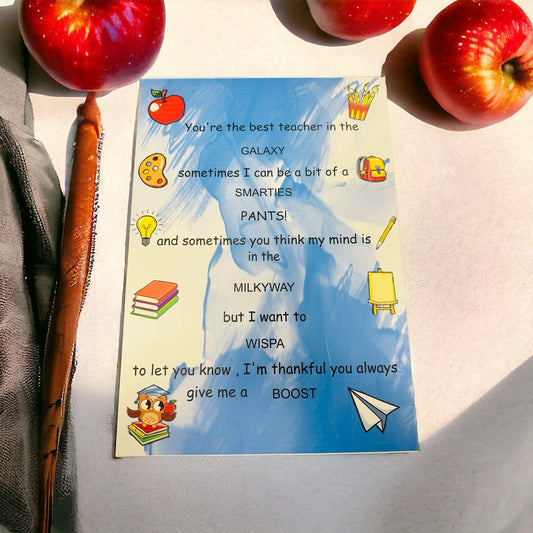 You're the best teacher in the
GALAXY
sometimes I can be a bit of a
SMARTIES
PANTS!
and sometimes you think my mind is
in the
MILKYWAY
but I want to
WISPA
to let you know , I'm thankful you always
give me a BOOST